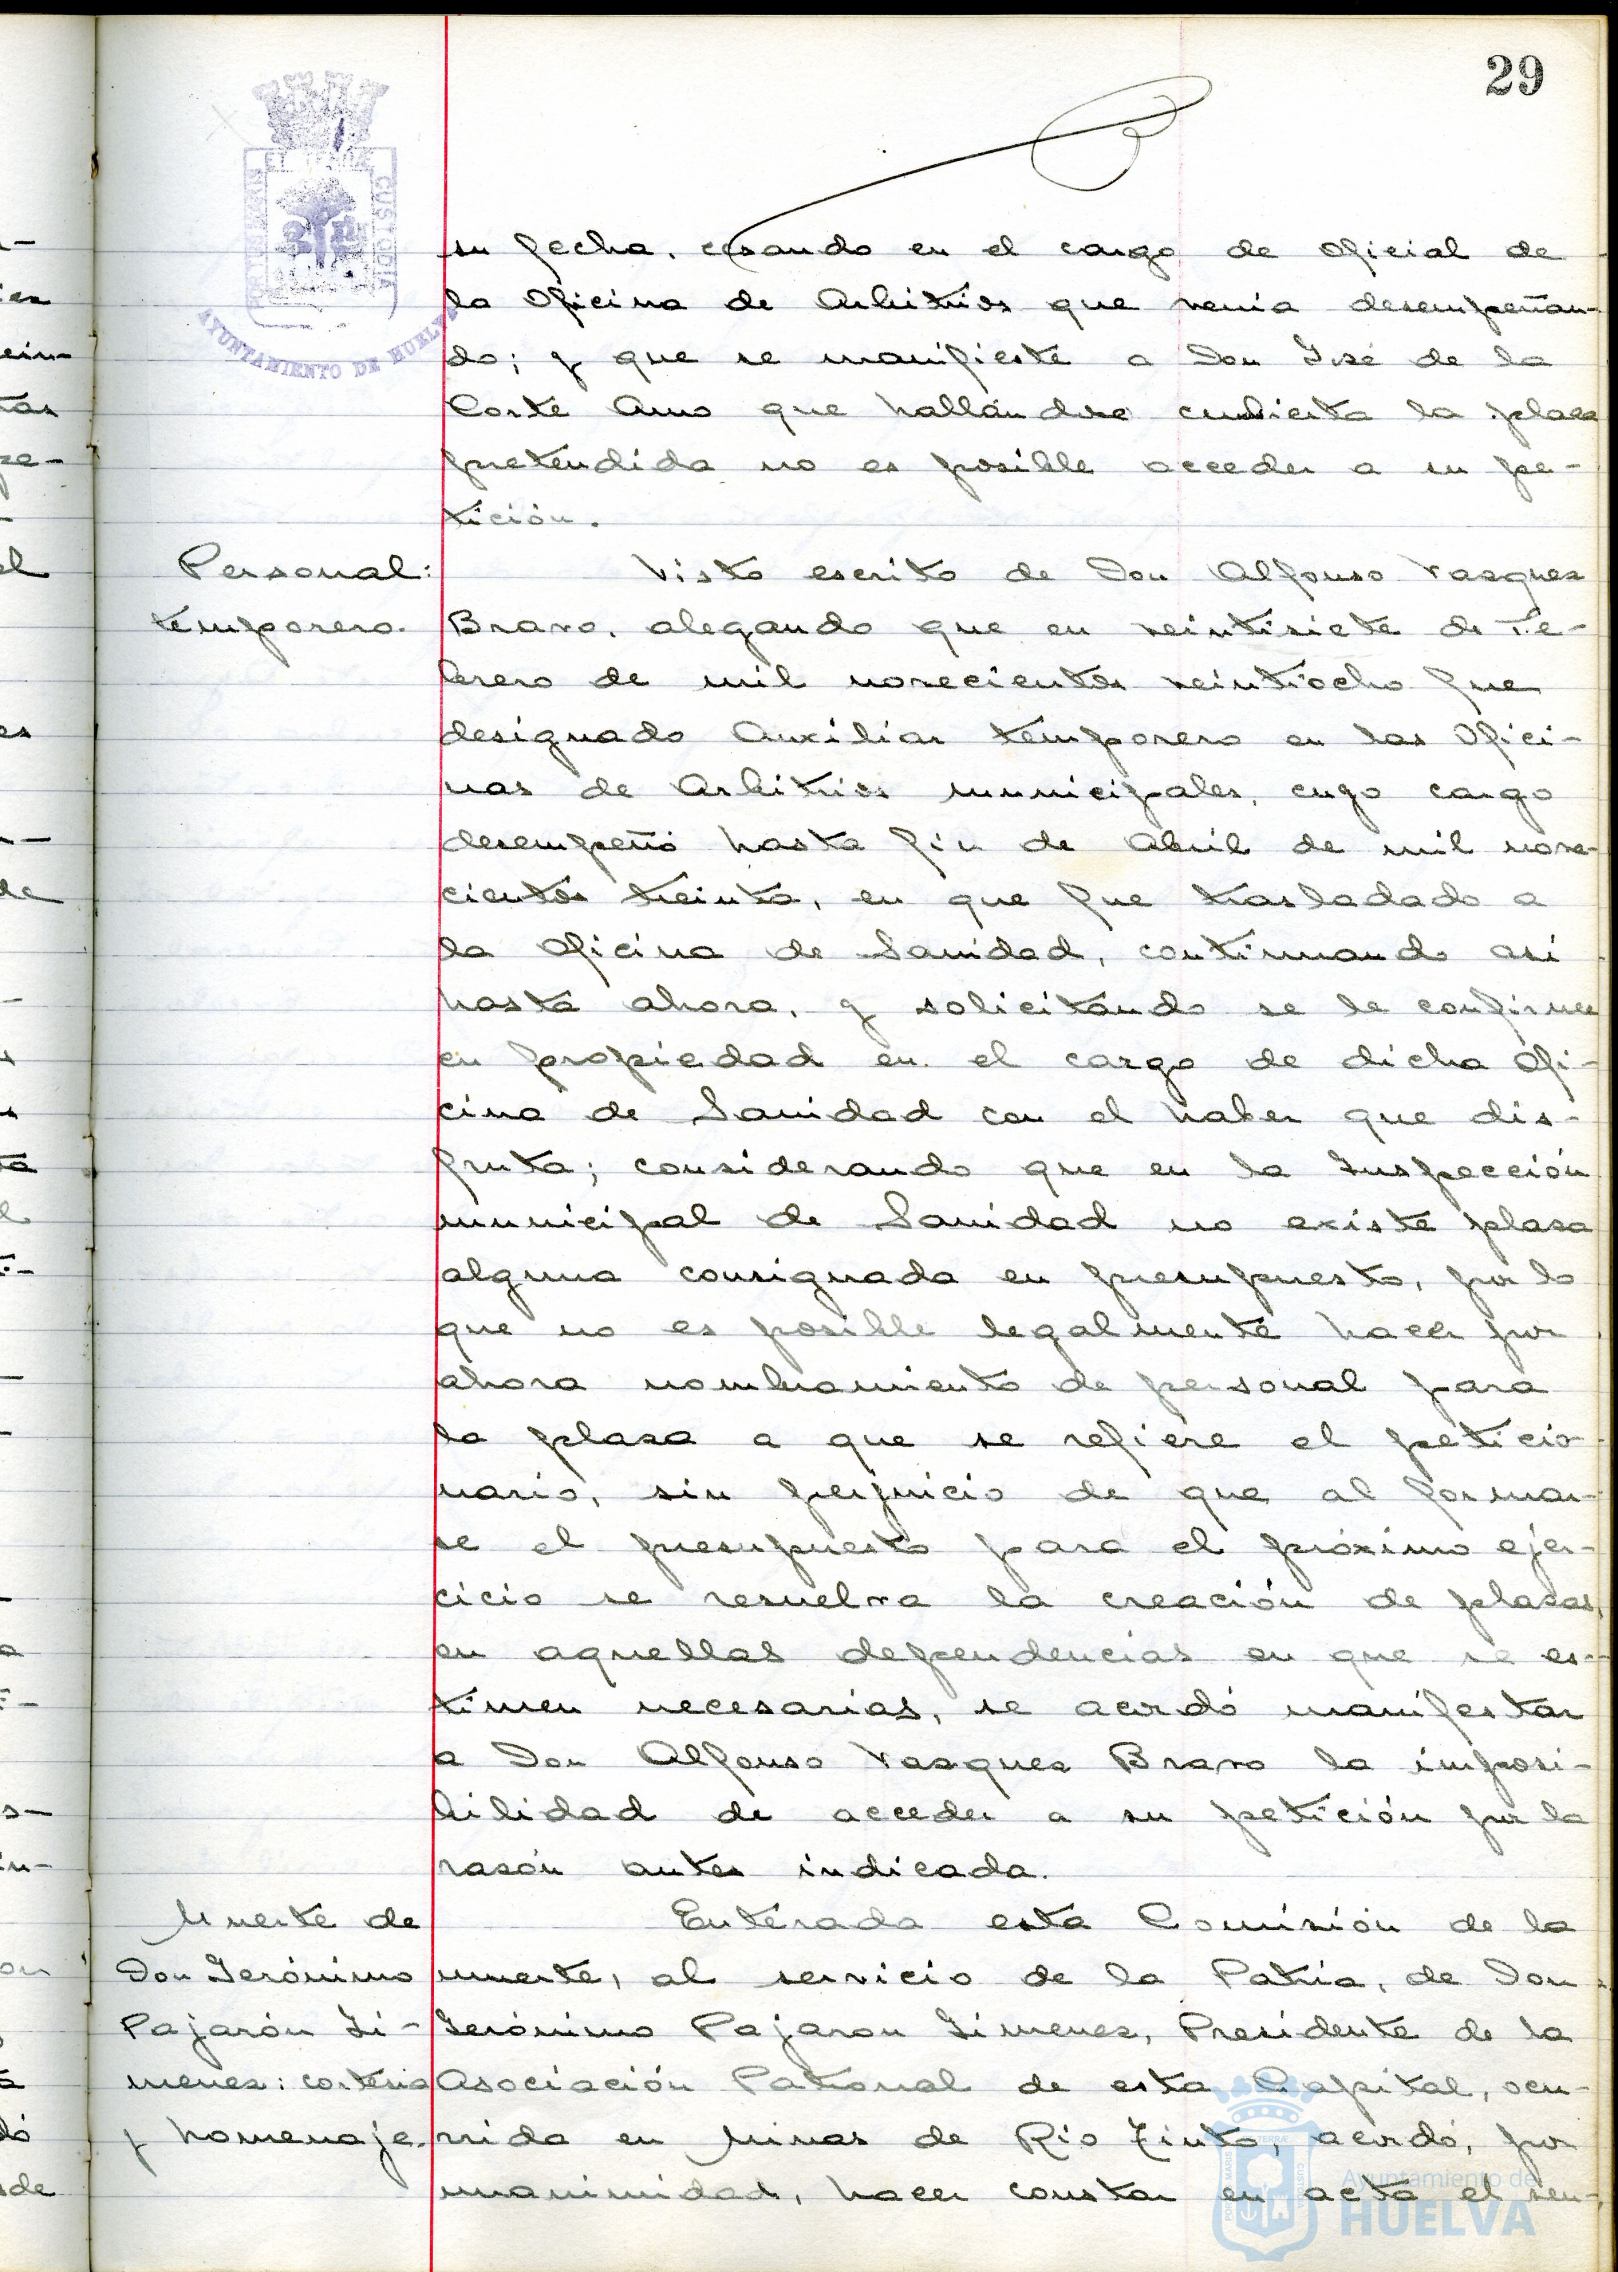 29
PORTUS MARIS ET TERRÆ CUSTODIA
AYUNTAMIENTO DE HUELVA
su fecha, cesando en el cargo de Oficial de
la Oficina de Arbitrios que venia desempeñan-
do; y que se manifieste a Don José de la
Corte Amo que hallándose cubierta la plaza
pretendida no es posible acceder a su pe-
tición.
Personal:
temporero.
Visto escrito de Don Alfonso Vazquez
Bravo, alegando que en veintisiete de Fe-
brero de mil novecientos veintiocho fue
designado Auxiliar temporero en las Ofici-
nas de Arbitrios municipales, cuyo cargo
desempeñó hasta fin de Abril de mil nove-
cientos treinta, en que fue trasladado a
la Oficina de Sanidad, continuando asi
hasta ahora, y solicitando se le confirme
en propiedad en el cargo de dicha Ofi-
cina de Sanidad con el haber que dis-
fruta; considerando que en la Inspección
municipal de Sanidad no existe plaza
alguna consignada en presupuesto, por lo
que no es posible legalmente hacer por
ahora nombramiento de personal para
la plaza a que se refiere el peticio-
nario, sin perjuicio de que al formar-
se el presupuesto para el próximo ejer-
cicio se resuelva la creación de plazas,
en aquellas dependencias en que se es-
timen necesarias, se acordó manifestar
a Don Alfonso Vazquez Bravo la imposi-
bilidad de acceder a su petición por la
razón antes indicada.
Muerte de
Don Gerónimo
Pajarón Ji-
menez: corteria
y homenaje.
Enterada esta Comisión de la
muerte, al servicio de la Patria, de Don
Gerónimo Pajaron Jimenez, Presidente de la
Asociación Patronal de esta Capital, ocu-
rrida en Minas de Rio Tinto, acordó, por
unanimidad, hacer constar en acta el sen-
Ayuntamiento de
HUELVA